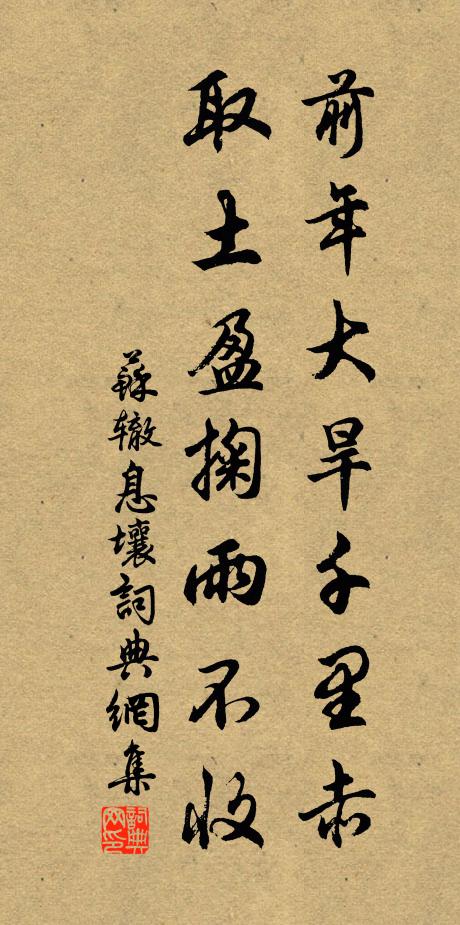 前年大旱千里赤
取土盈掬雨不收
蘇辙息壤詞典網集
詞典网印